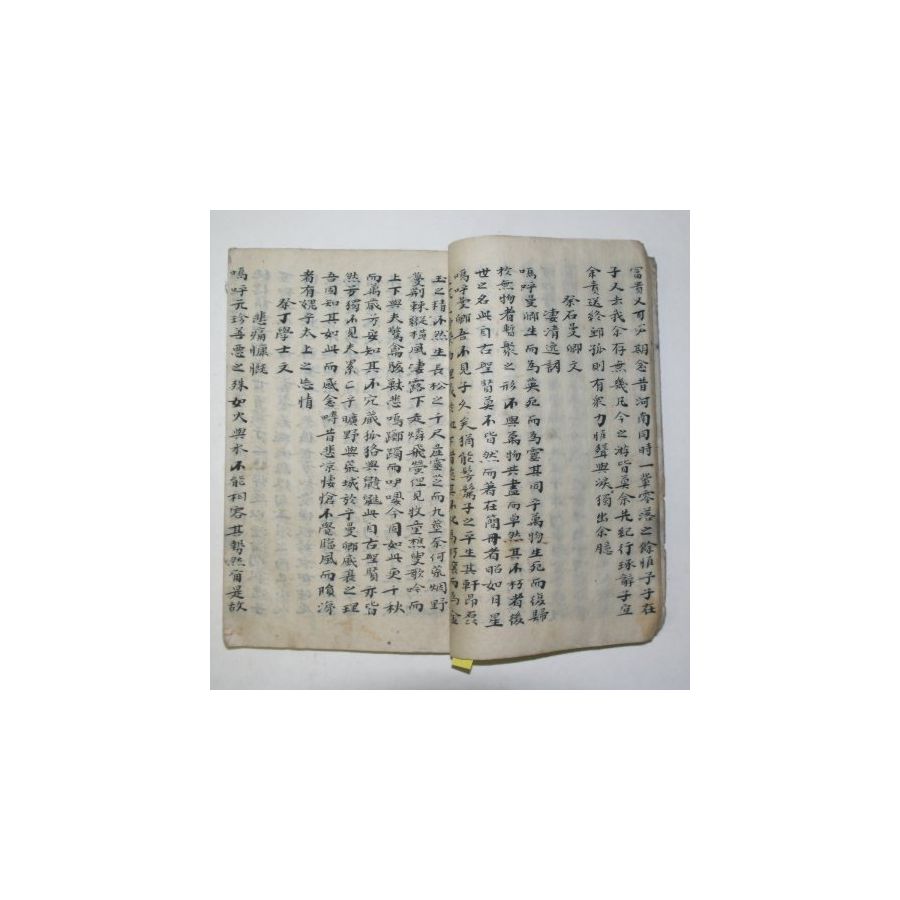 富貴又可期念昔河南同時一輩零落之餘惟予子在
子又去我余存無幾凡今之游皆莫余先紀行琢辭子宜
余責送終卹孤則有衆力惟聲與淚獨出余臆
祭石曼卿文
凄清逸調
嗚呼曼卿生而爲英死而爲靈其同乎萬物生死而復歸
於無物者暫聚之形不與萬物共盡而卓然其不朽者後
世之名此自古聖賢莫不皆然而著在簡冊者昭如日星
嗚呼曼卿吾不見子久矣猶能髣髴子之平生其軒昂磊
者意其不化爲朽壤而爲金
玉之精不然生長松之千尺産靈芝而九莖奈何荒烟野
蔓荆棘縱橫風凄露下走燐飛螢但見牧童樵叟歌吟而
上下與夫驚禽駭獸悲鳴躑躅而咿嚶今固如此更千秋
而萬歲兮安知其不穴藏狐狢與鼯鼪此自古聖賢亦皆
然兮獨不見夫累々乎曠野與荒城於乎曼卿盛衰之理
吾固知其如此而感念疇昔悲凉悽愴不覺臨風而隕涕
者有媿乎太上之忘情
祭丁學士文
悲痛慷慨
嗚呼元珍善惡之殊如火與水不能相容其勢然爾是故